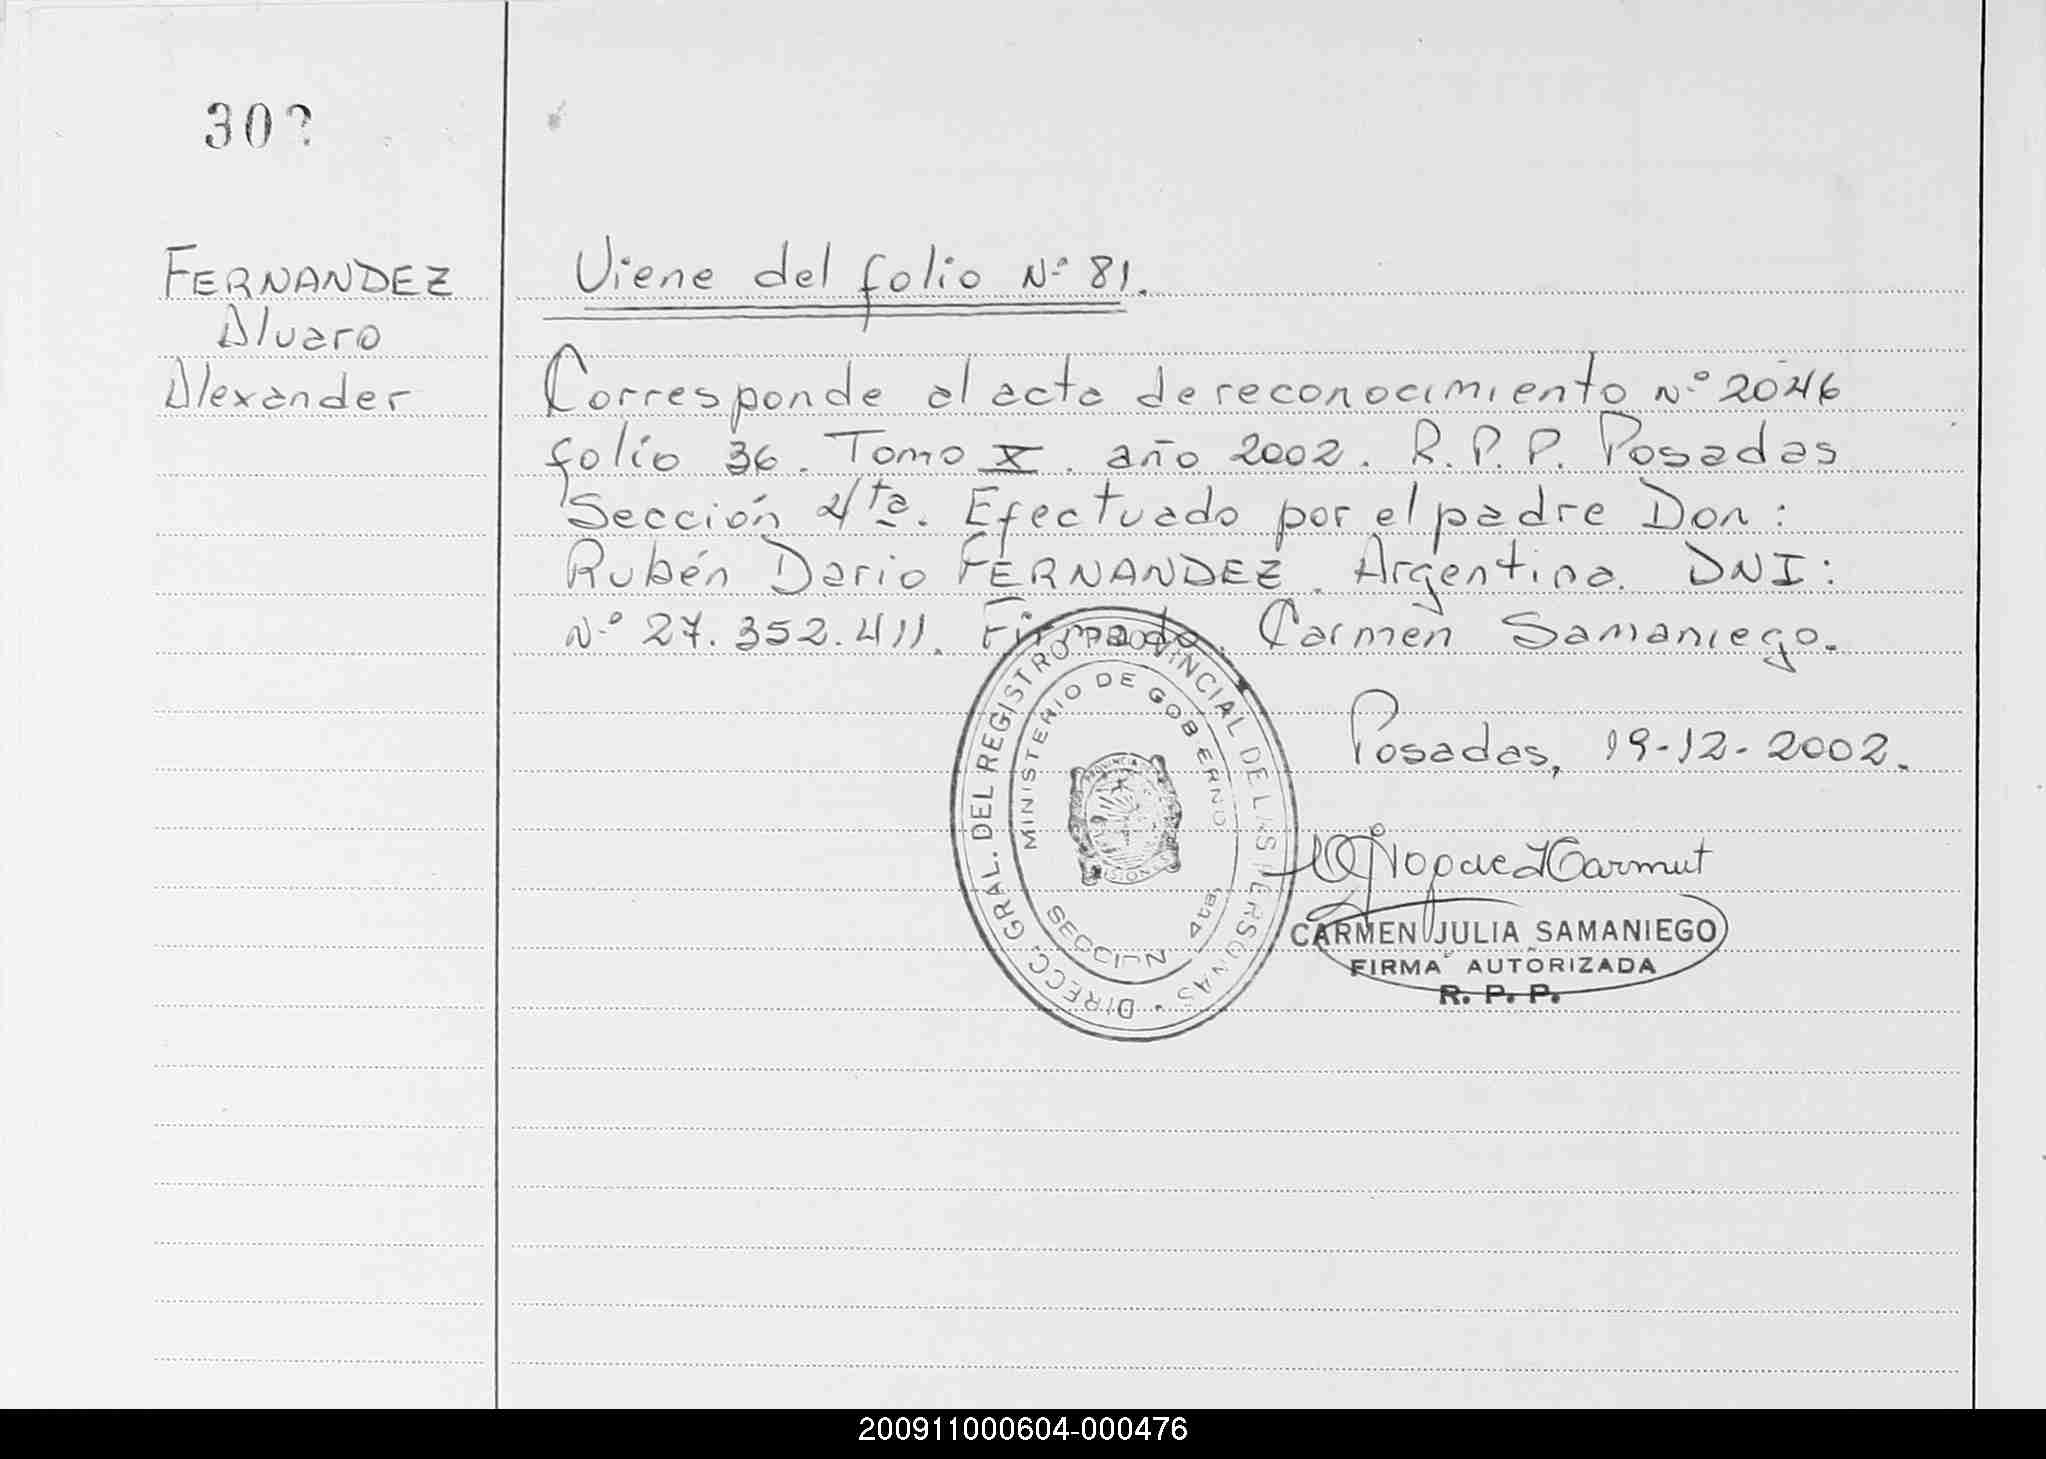 30?
FERNANDEZ
Alvaro
Alexander
Viene del folio Nº 81.
Corresponde al acta de reconocimiento Nº 2046
folio 36. Tomo X. año 2002. R.P.P. Posadas
Sección 4ta. Efectuado por el padre Don:
Rubén Dario FERNANDEZ. Argentino. DNI:
Nº 27.352.411. Firmado. Carmen Samaniego.
Posadas, 19-12-2002.
DIRECC. GRAL. DEL REGISTRO PROVINCIAL DE LAS PERSONAS
MINISTERIO DE GOBIERNO
PROVINCIA
MISIONES
SECCION 4ta
CARMEN JULIA SAMANIEGO
FIRMA AUTORIZADA
R. P. P.
200911000604-000476